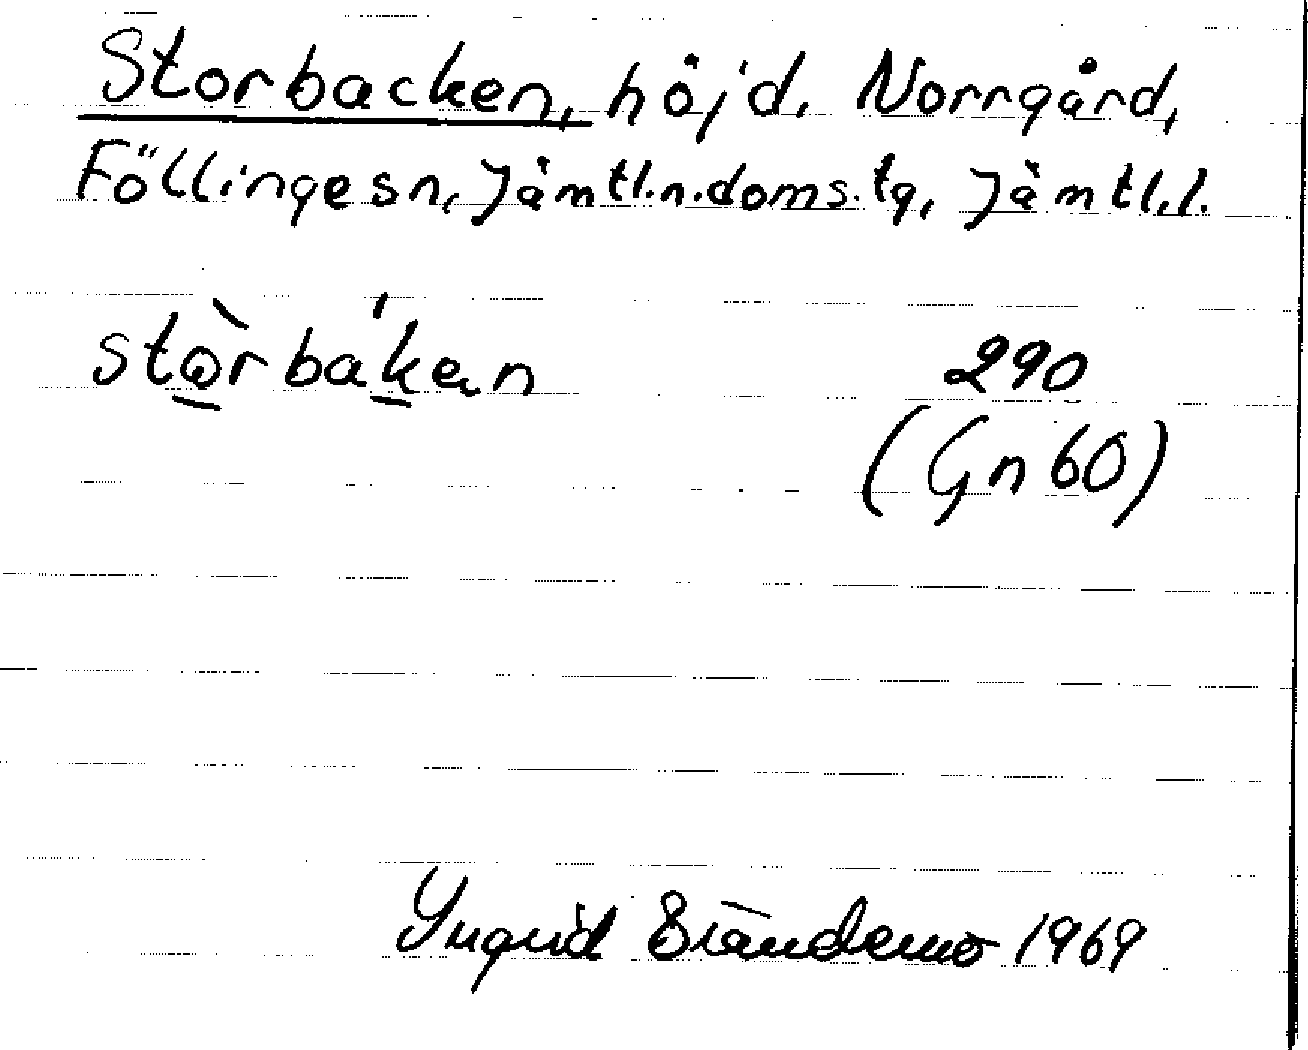 Storbacken, höjd, Norrgård,
Föllinge sn, Jämtl.n.doms.tg, Jämtl.l.
stòrbákan 290
(Gn 60)
Yngrid Brändemo 1969